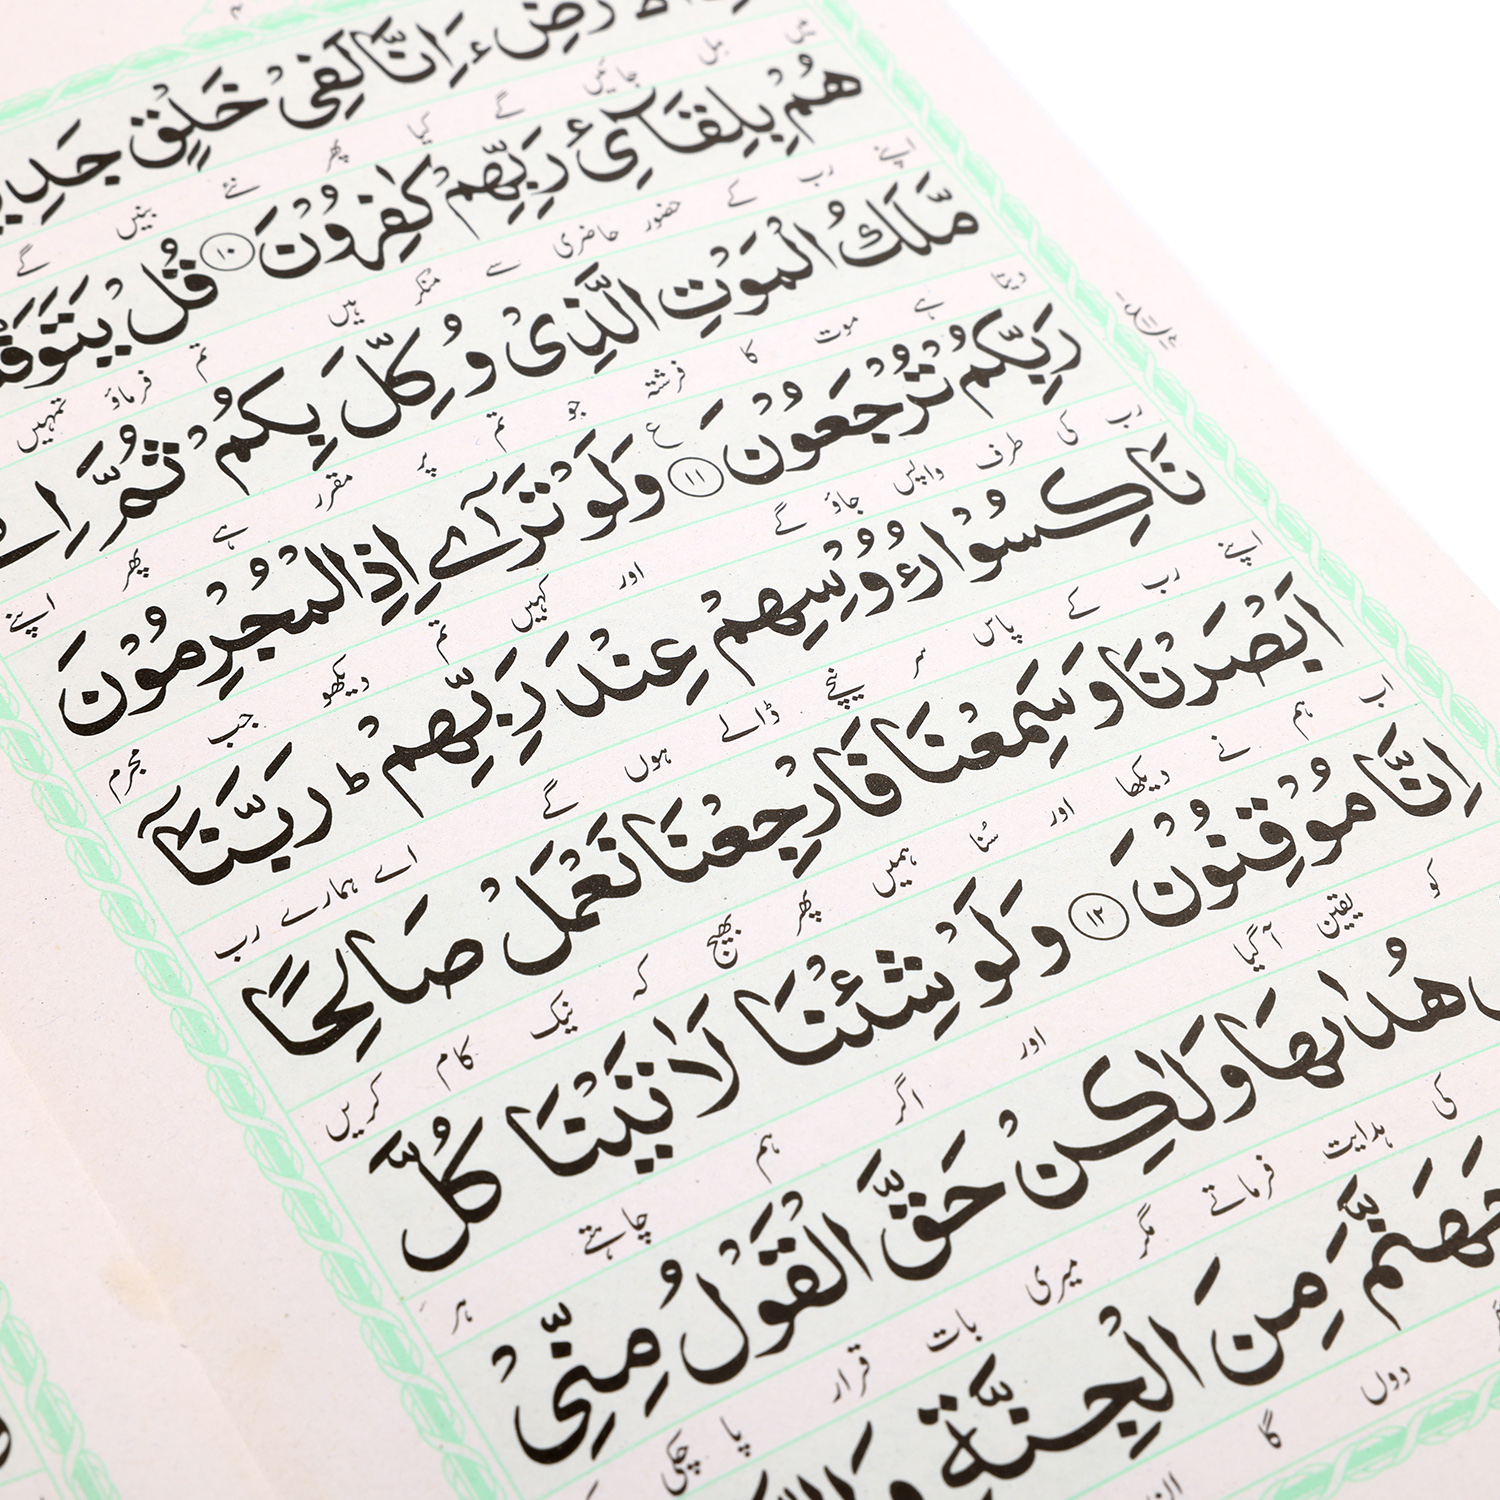 ءَاِنَّا لَفِیْ خَلْقٍ جَدِیْ
جائیں گے کیا پھر نئے بنیں گے
هُمْ بِلِقَآئِ رَبِّهِمْ كٰفِرُوْنَ ۝۱۰ قُلْ یَتَوَفّٰ
کے حضور حاضری سے منکر ہیں تم فرماؤ تمہیں
مَّلَكُ الْمَوْتِ الَّذِیْ وُكِّلَ بِكُمْ ثُمَّ اِ
ہے موت کا فرشتہ جو تم پر مقرر ہے پھر اپنے
رَبِّكُمْ تُرْجَعُوْنَ ۝۱۱ ع وَلَوْ تَرٰۤی اِذِ الْمُجْرِمُوْنَ
کی طرف واپس جاؤ گے اور کہیں تم دیکھو جب مجرم
نَاكِسُوْا رُءُوْسِهِمْ عِنْدَ رَبِّهِمْ ؕ رَبَّنَاۤ
اپنے رب کے پاس سر نیچے ڈالے ہوں گے اے ہمارے رب
اَبْصَرْنَا وَسَمِعْنَا فَارْجِعْنَا نَعْمَلْ صَالِحًا
ہم نے دیکھا اور سُنا ہمیں پھر بھیج کہ نیک کام کریں
اِنَّا مُوْقِنُوْنَ ۝۱۲ وَلَوْ شِئْنَا لَاٰتَیْنَا كُلَّ
کو یقین آگیا اور اگر ہم چاہتے ہر
هُدٰىهَا وَلٰكِنْ حَقَّ الْقَوْلُ مِنِّیْ
کی ہدایت فرماتے مگر میری بات قرار پا چکی
جَهَنَّمَ مِنَ الْجِنَّةِ وَال
دوں گا